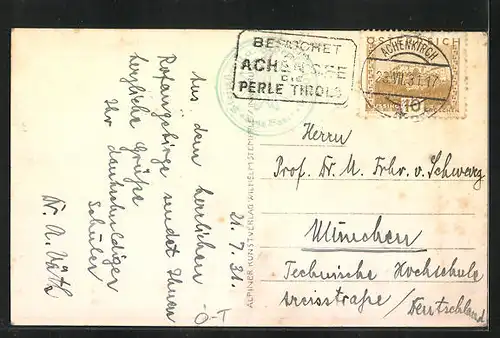 Aus dem herrlichen
Rofangebirge sendet Ihnen
herzliche Grüße
Ihr dankschuldiger
Schüler
Dr. A.
Ö-T
21. 7. 31.
ALPINER KUNSTVERLAG WILHELM STEMPFLE
BESUCHET
ACHENSEE
DIE
PERLE TIROLS
ÖSTERREICH
ACHENKIRCH
22.VII.31.17
10
Herrn
Prof. Dr. M. Frhr. v. Schwarz
München
Technische Hochschule
/ Deutschland